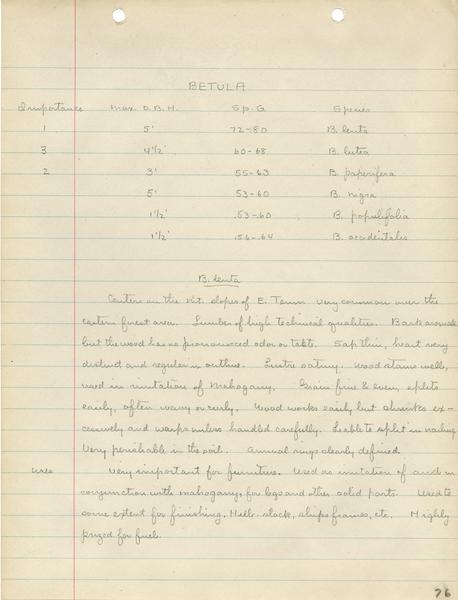 BETULA
Importance Max. D.B.H. Sp. G Species
1 5' 72-80 B. lenta
3 4½' 60-68 B. lutea
2 3' 55-63 B. paperifera
5' 53-60 B. nigra
1½' .53-60 B. populifolia
1½' .56-.64 B. occidentalis
B. lenta
Centers on the mt. slopes of E. Tenn very common over the
eastern forest area. Lumber of high technical qualities. Bark aromatic
but the wood has no pronounced odor or taste. Sap thin, heart very
distinct and regular in outline. Lustre satiny. Wood stains well,
used in imitation of Mahogany. Grain fine & even, splits
easily, often wavy or curly. Wood works easily but shrinks ex-
cessively and warps unless handled carefully. Liable to split in nailing
Very perishable in the soil. Annual rings clearly defined.
Uses Very important for furniture. Used as imitation of and in
conjunction with mahogany, for legs and other solid parts. Used to
some extent for finishing, Heel-stock, ships frames, etc. Highly
prized for fuel.
76